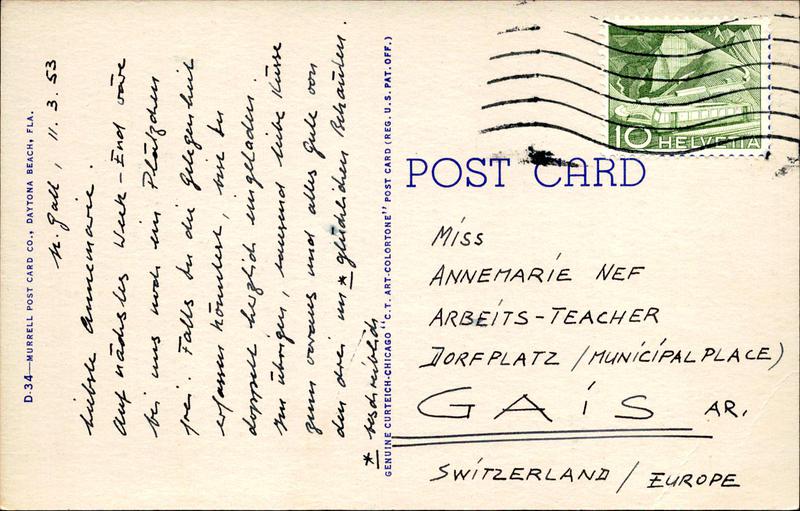 D-34—MURRELL POST CARD CO., DAYTONA BEACH, FLA.
St. Gall, 11.3.53
Liebste Annemarie.
Auf nächstes Week-End wäre
bei uns noch ein Plätzchen
frei. Falls Du die Gelegenheit
erfassen könntest, bist Du
doppelt herzlich eingeladen.
Im übrigen, tausend liebe Küsse
zum voraus und alles Gute von
den drei un* glücklichen Behüteten.
* beschreiblich
GENUINE CURTEICH-CHICAGO "C.T. ART-COLORTONE" POST CARD (REG. U.S. PAT. OFF.)
10 HELVETIA
POST CARD
MISS
ANNEMARIE NEF
ARBEITS-TEACHER
DORFPLATZ /MUNICIPALPLACE)
GAIS AR.
SWITZERLAND / EUROPE